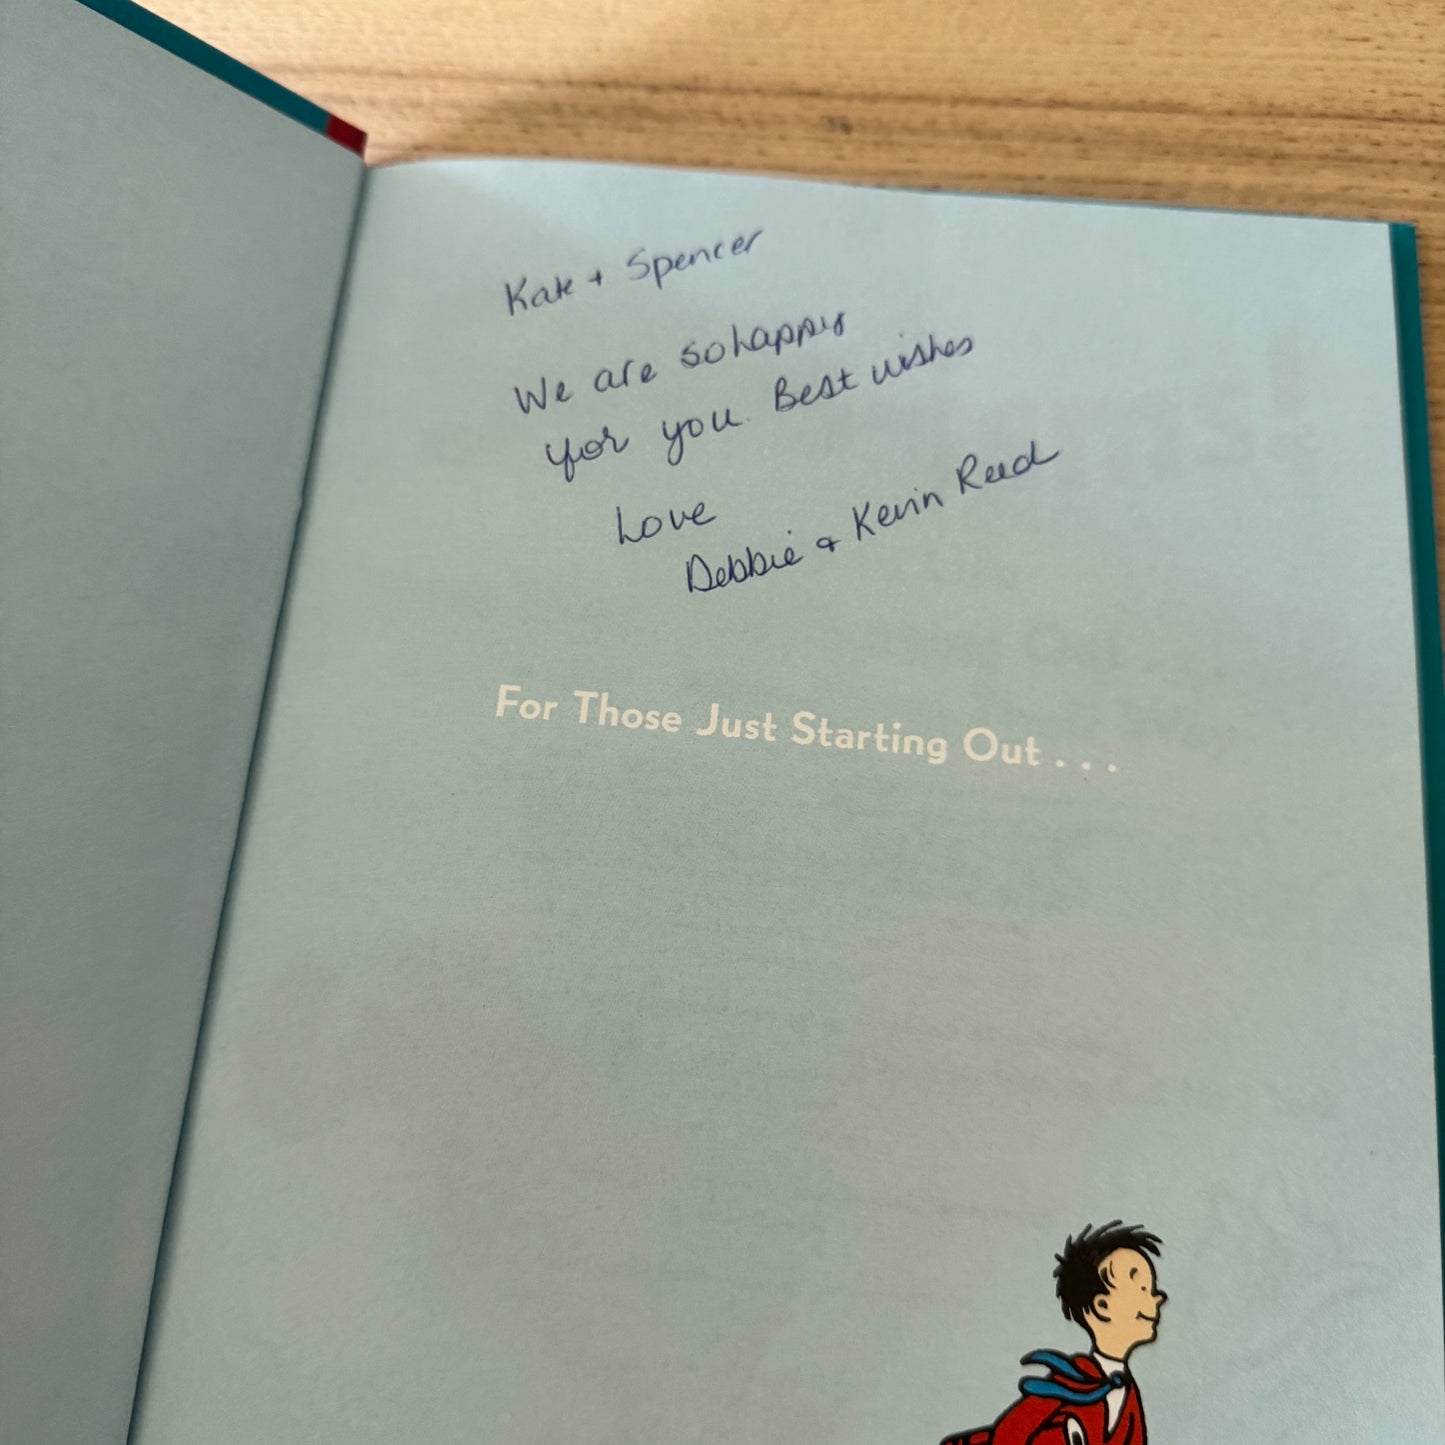 Kate + Spencer
We are so happy
for you. Best wishes
Love
Debbie & Kevin Reed
For Those Just Starting Out . . .